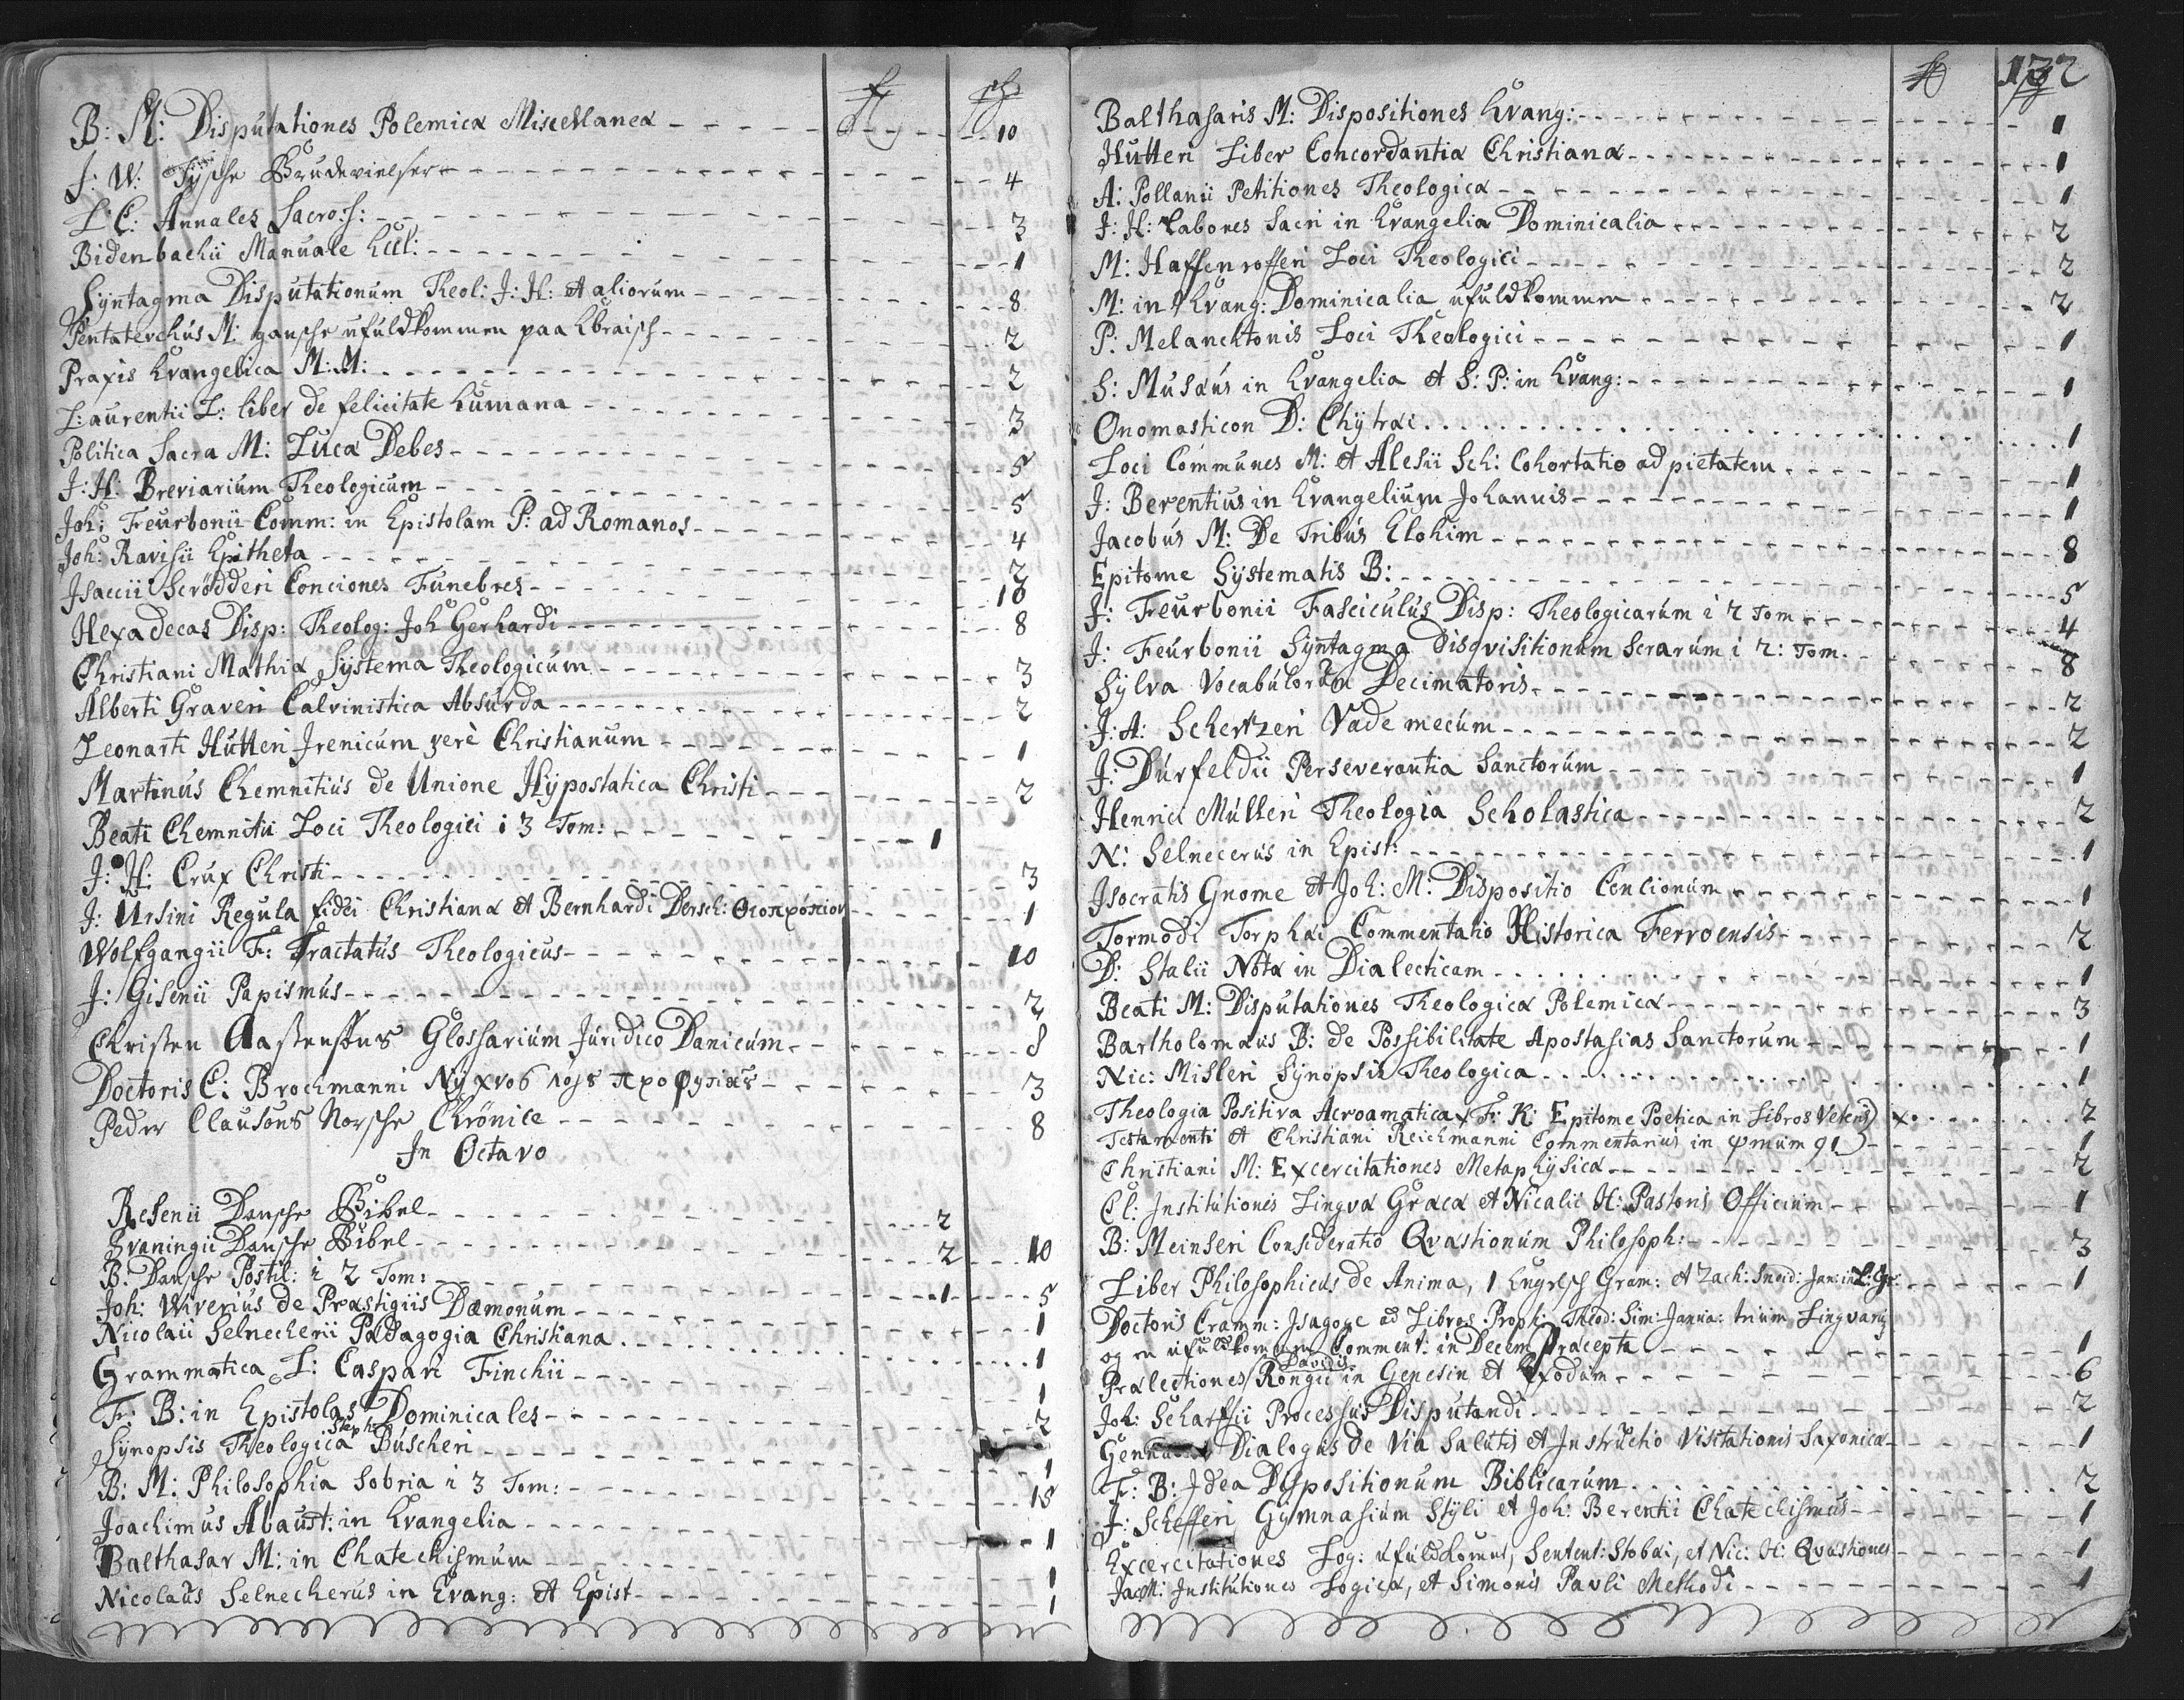 B: M: Disputationes Polemicæ Miscellaneæ - - - 10
J: W: Tÿsche Brudevielser - - - 4
L: C: Annales Sacro:s: - - - 3
Bidenbachii Manuale - - - 1
Syntagma Disputationum Theol: J: H: et aliorum - - - 8
Pentatevchus M: gansche ufuldkommen paa Ebraisch - - - 2
Praxis Evangelica M: M: - - - 2
Laurentii L: liber de felicitate humana - - - 3
Politica Sacra M: Lucæ Debes - - - 5
J: H: Breviarium Theologicum - - - 5
Joh: Feurbonii Comm: in Epistolam P: ad Romanos - - - 4
Joh: Ravisii Epitheta - - - 2
Isacii Scrödderi Conciones Funebres - - - 10
Hexadecas Disp: Theolog: Joh Gerhardi - - - 8
Christiani Mathiæ Systema Theologicum - - - 3
Alberti Graveri Calvinistica Absurda - - - 2
Leonarti Hutteri Irenicum verè Christianum - - - 1
Martinus Chemnitius de Unione Hypostatica Christi - - - 2
Beati Chemnitii Loci Theologici i 3 Tom: - - - 1
J: H: Crux Christi - - - 3
J: Ursini Regula fidei Christianæ et Bernhardi Dersch: - - - 1
Wolfgangii F: Tractatus Theologicus - - - 10
J: Gisenii Papismus - - - 2
Christen Aastensøns Glossarium Juridico Danicum - - - 8
Doctoris C: Brochmanni - - - 3
Peder Clausøns Norsche Chrönice - - - 8
In Octavo
Resenii Dansche Bibel - - - 2
Svaningii Dansche Bibel - - - 2 10
B. Dansche Postil: i 2 Tom: - - - 1 5
Joh: Wirerius de Præstigiis Dæmonum - - - 1
Nicolaii Selnecherii Pædagogia Christiana - - - 1
Grammatica L: Caspari Finchii - - - 1
Fr: B: in Epistolas Dominicales - - - 2
Synopsis Theologica Steph: Buscheri - - - 1
B: M: Philosophia Sobria i 3 Tom: - - - 15
Joachimus Abaust: in Evangelia - - - 1
Balthasar M: in Chatechismum - - - 1
Nicolaus Selnecherus in Evang: et Epist - - - 1
132
Balthasaris M: Dispositiones Evang: - - - 1
Hutteri Liber Concordantiæ Christianæ - - - 1
A: Pollanii Petitiones Theologicæ - - - 1
J: H: Labores Sacri in Evangelia Dominicalia - - - 2
M: Haffenrofferi Loci Theologici - - - 2
M: in Evang: Dominicalia ufuldkommen - - - 2
P: Melanchtonis Loci Theologici - - - 1
S: Musæus in Evangelia et S: P: in Evang: - - - 1
Onomasticon D: Chytræi - - - 1
Loci Communes M: et Alesii Sch: Cohortatio ad pietatem - - - 1
J: Berentius in Evangelium Johannis - - - 1
Jacobus M: De Tribus Elohim - - - 8
Epitome Systematis B: - - - 5
J: Feurbonii Fasciculus Disp: Theologicarum i 2 Tom - - - 4
J: Feurbonii Syntagma Disqvisitionum Scrarum i 2: Tom. - - - 8
Sylva Vocabulorum Decimatoris - - - 2
J: A: Schertzeri Vade mecum - - - 2
J: Durfeldii Perseverantia Sanctorum - - - 1
Henrici Mulleri Theologia Scholastica - - - 2
N: Selnecerus in Epist: - - - 1
Isocratis Gnome et Joh: M: Dispositio Concionum - - - 1
Tormodi Torphæi Commentatio Historica Ferroensis - - - 2
D: Stalii Notæ in Dialecticam - - - 1
Beati M: Disputationes Theologicæ Polemicæ - - - 3
Bartholomæus B: de Possibilitate Apostasias Sanctorum - - - 1
Nic: Misleri Synopsis Theologica - - - 1
Theologia Positiva Acroamatica, Fr: K: Epitome Poetica in Libros Veteris - - - 2
Testamenti et Christiani Reichmanni Commentarius in ψmum 91 - - - 1
Christiani M: Excercitationes Metaphysicæ - - - 2
Cl: Institutionis Lingvæ Græcæ et Nicalii H: Pastoris Officium - - - 1
B: Meinseri Consideratio Qvæstionum Philosoph: - - - 3
Liber Philosophicus de Anima, 1 Engelsch Gram: et Zach: Sneid: Jan: in L: Gr: - - - 1
Doctoris Cramm: Isagoge ad Libros Proph: Theod: Sim: Janua: trium Lingvarũ
og en ufuldkommen Comment: in Decem Præcepta - - - 1
Prælectiones Davidis Rongii in Genesin et Exodum - - - 6
Joh: Scharffii Processus Disputandi - - - 2
Dialogus de Via Salutis et Instructio Visitationis Saxonicæ - - - 1
F: B: Idea Dispositionum Biblicarum - - - 2
J: Schefferi Gymnasium Styli et Joh: Berentii Chatechismus - - - 1
Excercitationes Log: ufuldkomne, Sentent: Stobæi, et Nic: H: Qvæstiones - - - 1
Jac: M: Institutiones Logicæ, et Simonis Pavli Methodi - - - 1